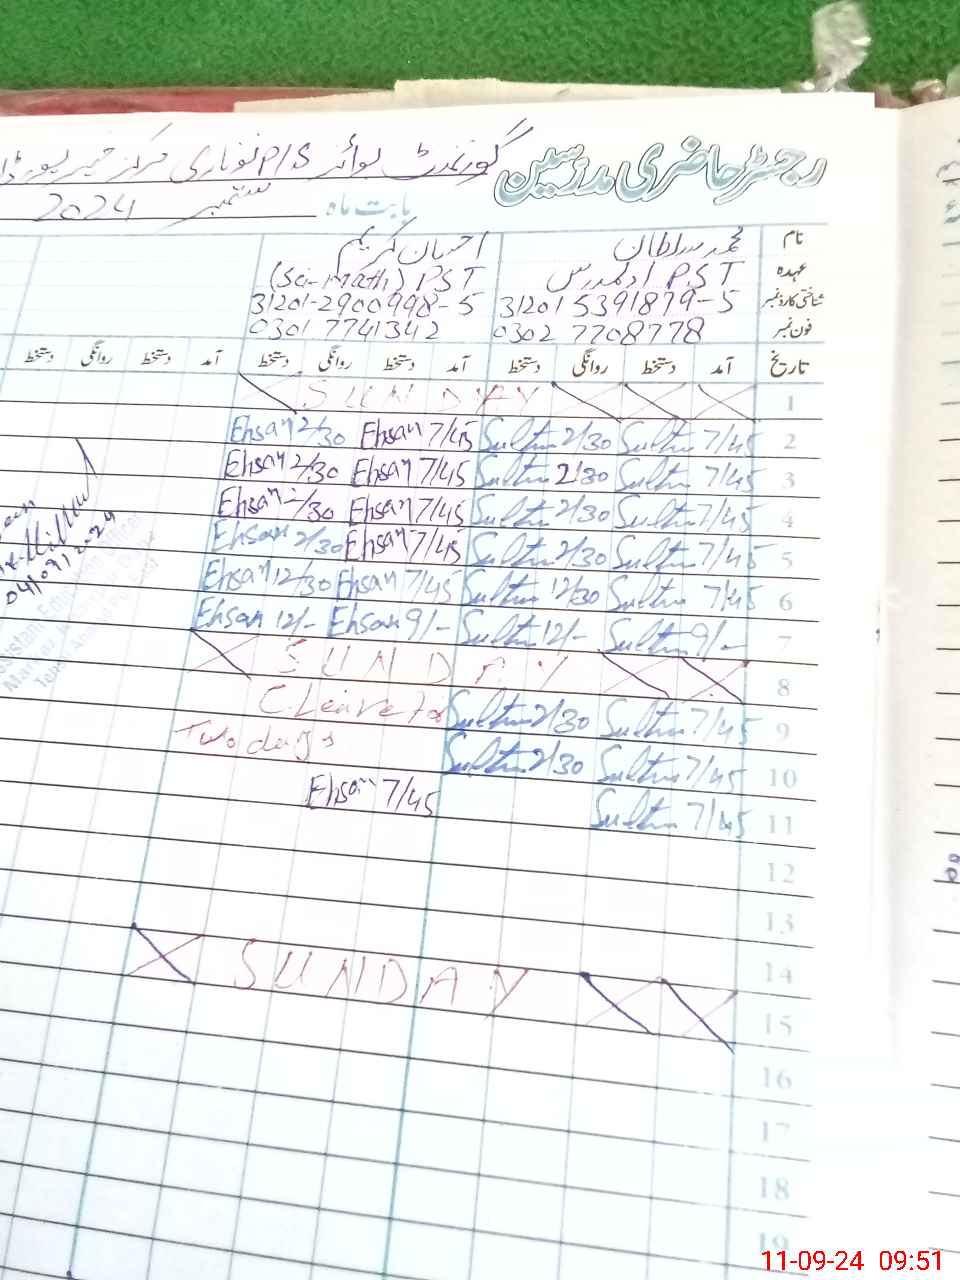 رجسٹر حاضری مدرسین گورنمنٹ بوائز P/S نوناری مرکز خیرپور
بابت ماہ ستمبر 2024
نام محمد سلطان احسان کریم
عہدہ P.S.T اول مدرس (Sci-Math) PST
شناختی کارڈ نمبر 312015391879-5 31201-2900998-5
فون نمبر 0302 7708778 0301 7741342
تاریخ آمد دستخط روانگی دستخط آمد دستخط روانگی دستخط آمد دستخط روانگی دستخط
1 SUNDAY
Ehsan 2/30 Ehsan 7/45 Sultan 2/30 Sultan 7/45 2
Ehsan 2/30 Ehsan 7/45 Sultan 2/30 Sultan 7/45 3
Ehsan 2/30 Ehsan 7/45 Sultan 2/30 Sultan 7/45 4
Ehsan 2/30 Ehsan 7/45 Sultan 2/30 Sultan 7/45 5
Ehsan 12/30 Ehsan 7/45 Sultan 12/30 Sultan 7/45 6
Ehsan 12/- Ehsan 9/- Sultan 12/- Sultan 9/- 7
SUNDAY 8
C.Leave for Sultan 2/30 Sultan 7/45 9
Two days Sultan 2/30 Sultan 7/45 10
Ehsan 7/45 Sultan 7/45 11
12
13
14
SUNDAY 15
16
17
18
19
04/09/2024
Assistant Education Officer
11-09-24 09:51